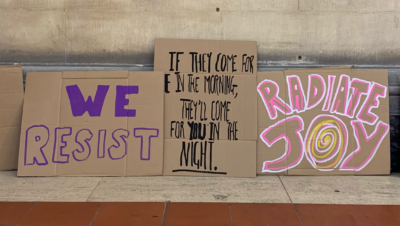 WE
RESIST
IF THEY COME FOR
E IN THE MORNING,
THEY'LL COME
FOR YOU IN THE
NIGHT.
RADIATE
JOY